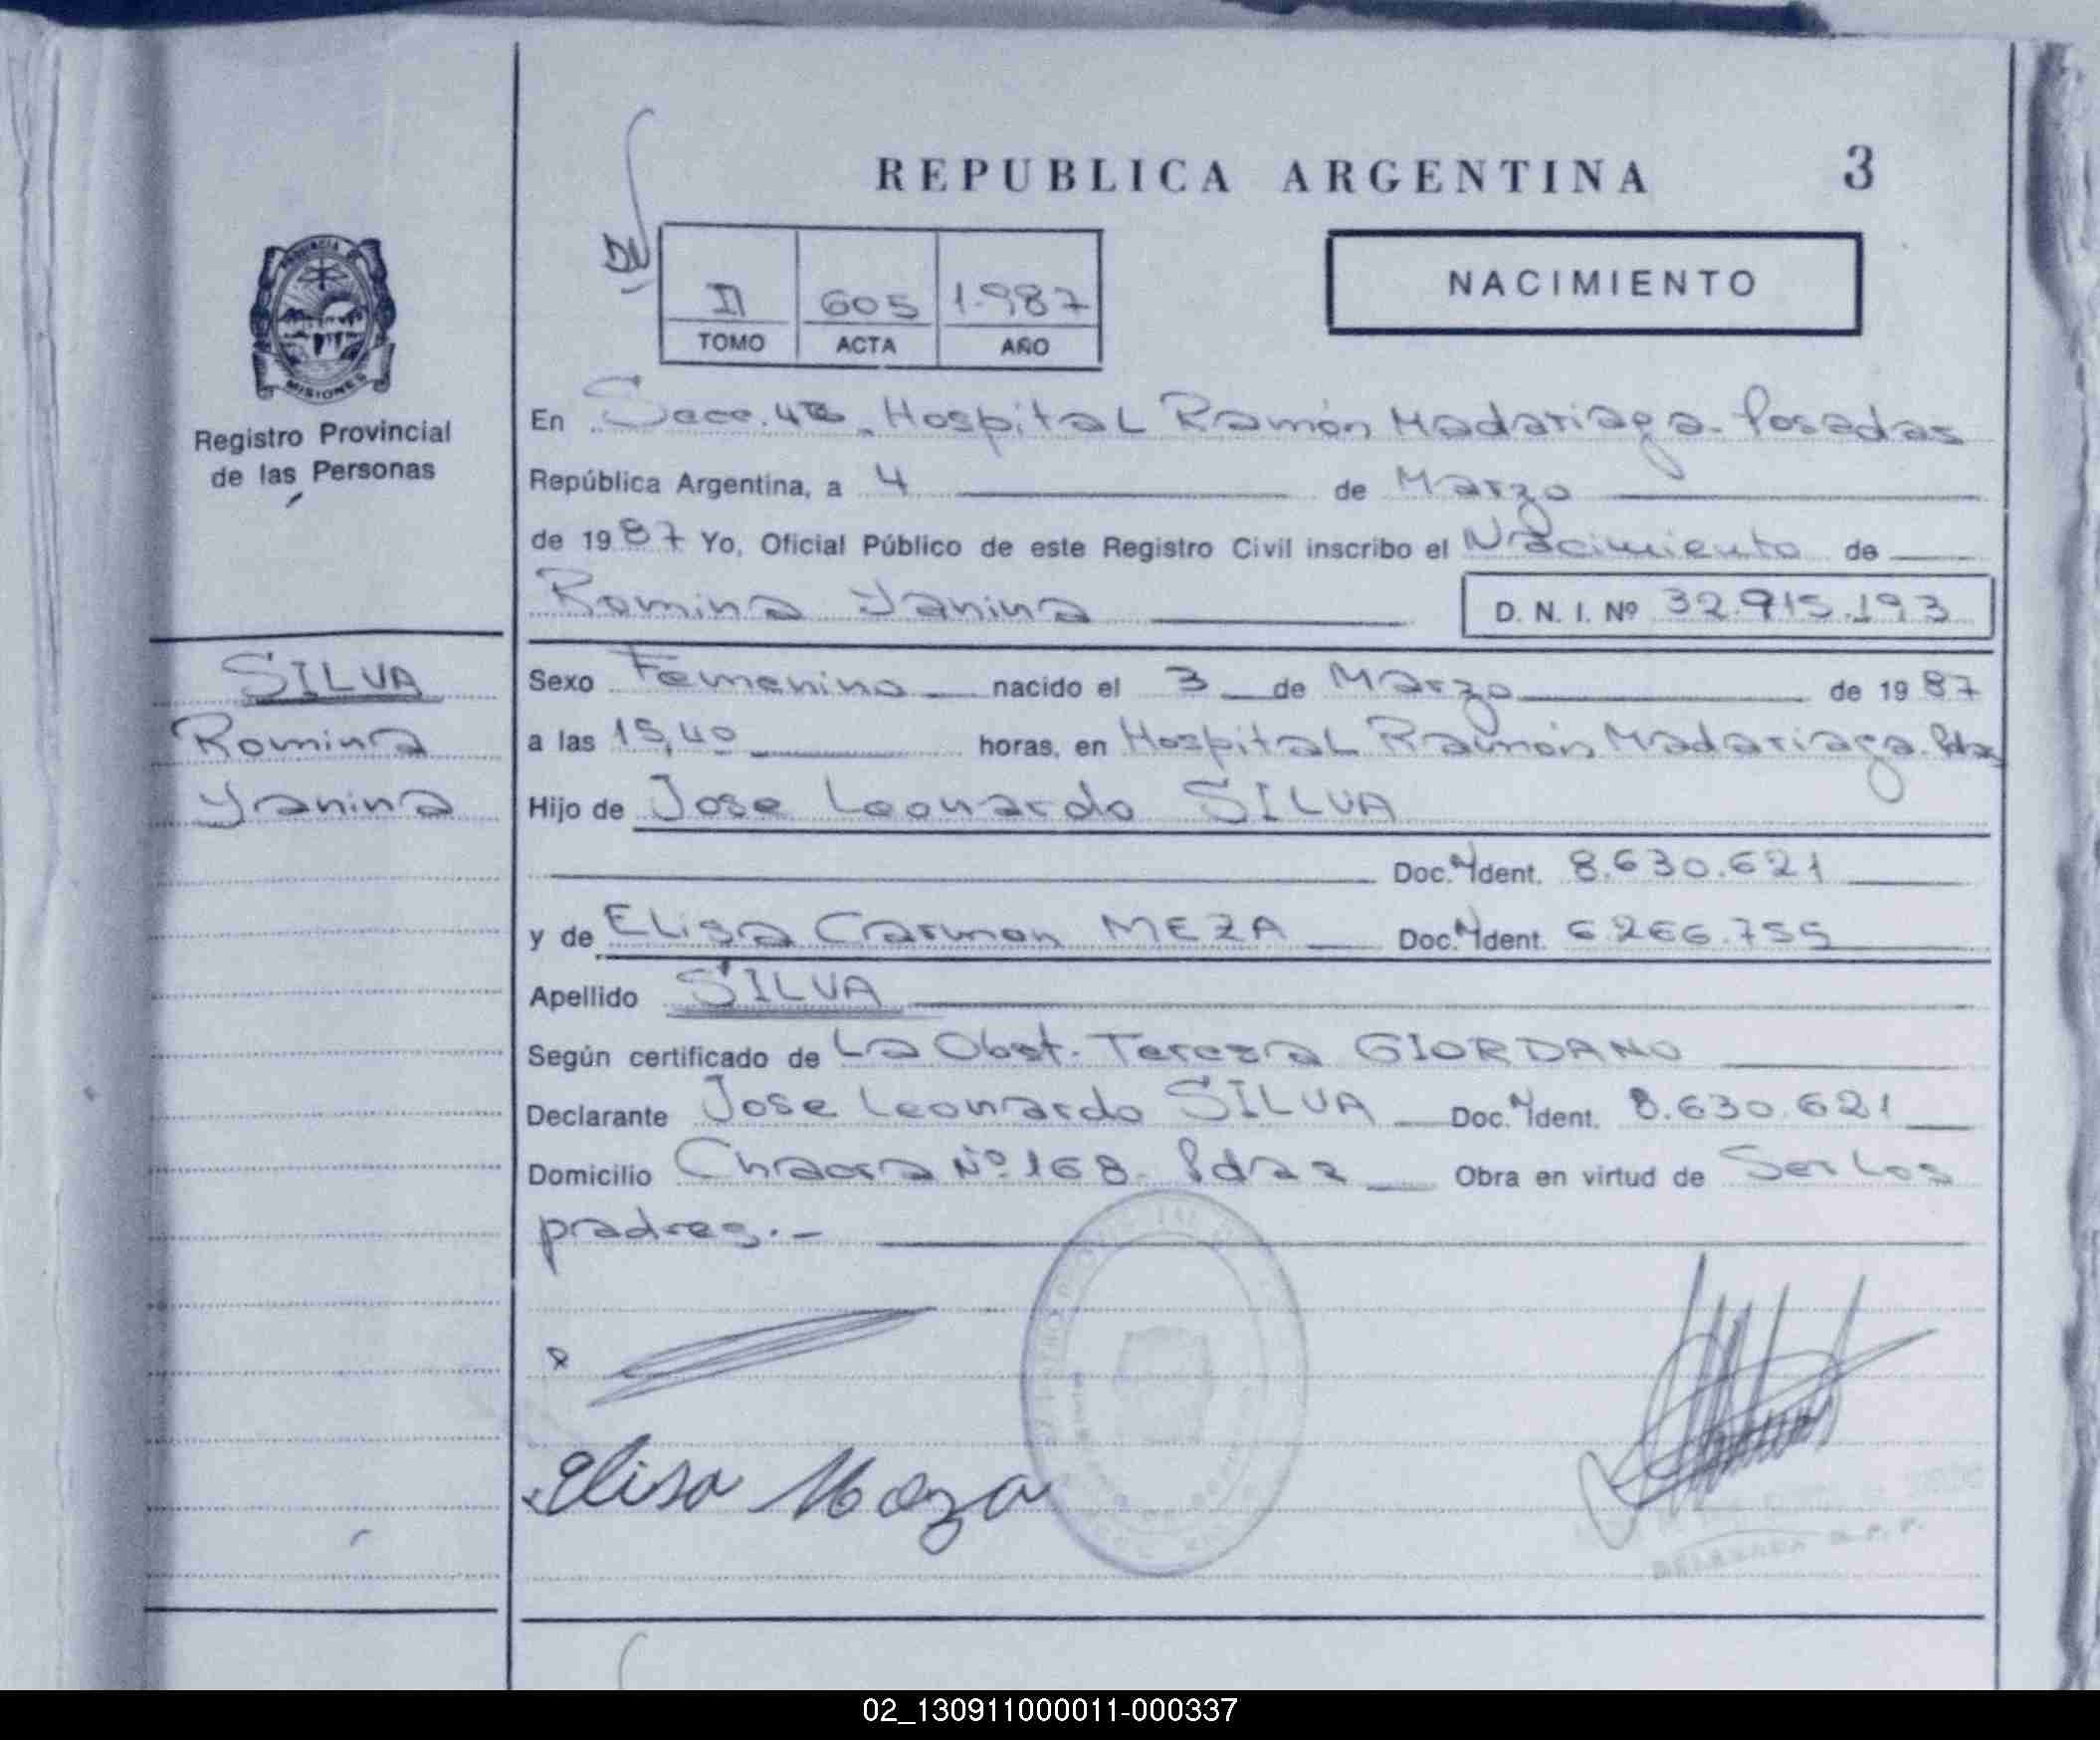 REPUBLICA ARGENTINA 3
DN
II 605 1.987
TOMO ACTA AÑO
NACIMIENTO
PROVINCIA DE
MISIONES
Registro Provincial
de las Personas
SILVA
Romina
Yanina
En Secc. 4ta. Hospital Ramón Madariaga. Posadas
República Argentina, a 4 de Marzo
de 1987 Yo, Oficial Público de este Registro Civil inscribo el Nacimiento de
Romina Yanina D. N. I. Nº 32.915.193
Sexo Femenino nacido el 3 de Marzo de 1987
a las 15,40 horas, en Hospital Ramón Madariaga. Pdas
Hijo de Jose Leonardo SILVA
Doc. Ident. 8.630.621
y de Elisa Carmen MEZA Doc. Ident. 6.266.755
Apellido SILVA
Según certificado de La Obst. Teresa GIORDANO
Declarante Jose Leonardo SILVA Doc. Ident. 8.630.621
Domicilio Chacra Nº 168. Pdas Obra en virtud de Ser Los
padres.-
Elisa Meza
R. P. P.
02_130911000011-000337